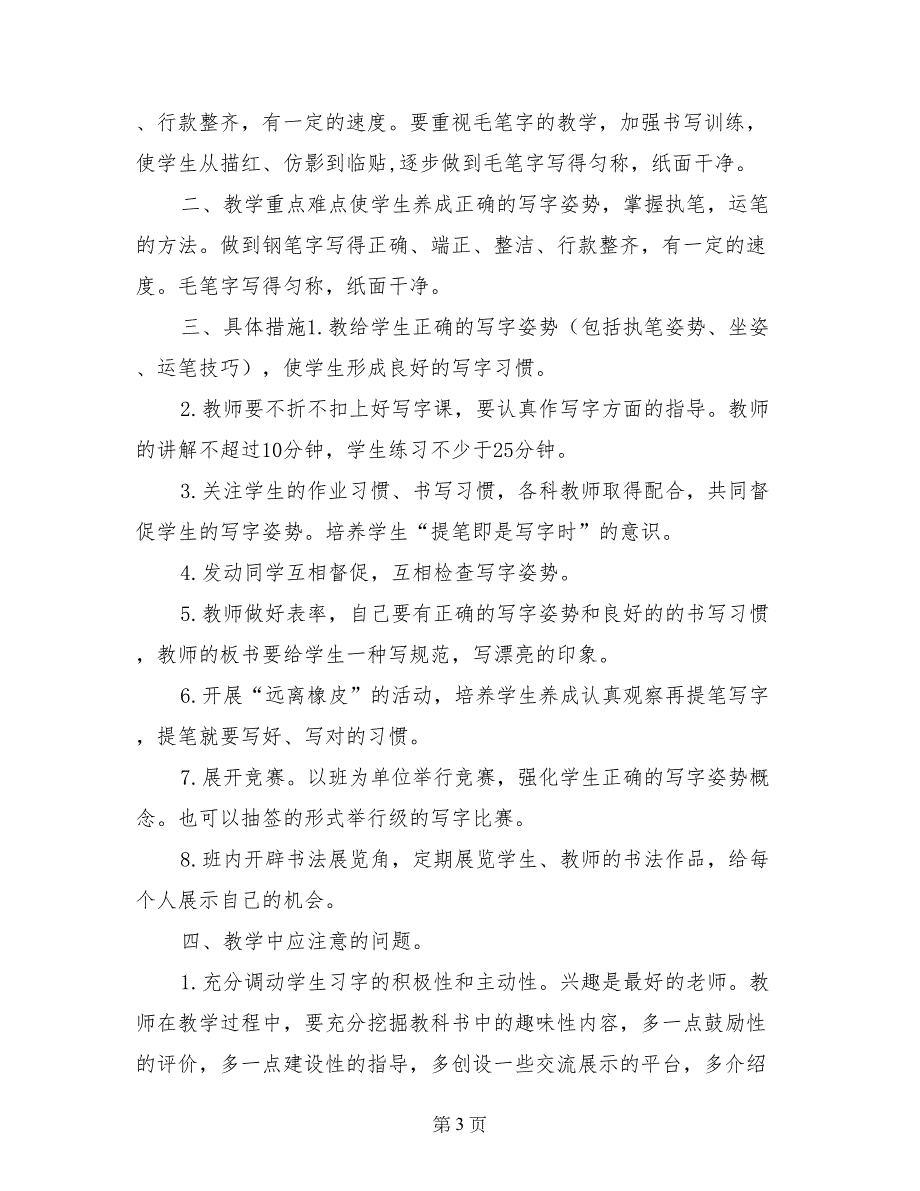 、行款整齐，有一定的速度。要重视毛笔字的教学，加强书写训练，
使学生从描红、仿影到临贴,逐步做到毛笔字写得匀称，纸面干净。
二、教学重点难点使学生养成正确的写字姿势，掌握执笔，运笔
的方法。做到钢笔字写得正确、端正、整洁、行款整齐，有一定的速
度。毛笔字写得匀称，纸面干净。
三、具体措施1.教给学生正确的写字姿势（包括执笔姿势、坐姿
、运笔技巧），使学生形成良好的写字习惯。
2.教师要不折不扣上好写字课，要认真作写字方面的指导。教师
的讲解不超过10分钟，学生练习不少于25分钟。
3.关注学生的作业习惯、书写习惯，各科教师取得配合，共同督
促学生的写字姿势。培养学生“提笔即是写字时”的意识。
4.发动同学互相督促，互相检查写字姿势。
5.教师做好表率，自己要有正确的写字姿势和良好的的书写习惯
，教师的板书要给学生一种写规范，写漂亮的印象。
6.开展“远离橡皮”的活动，培养学生养成认真观察再提笔写字
，提笔就要写好、写对的习惯。
7.展开竞赛。以班为单位举行竞赛，强化学生正确的写字姿势概
念。也可以抽签的形式举行级的写字比赛。
8.班内开辟书法展览角，定期展览学生、教师的书法作品，给每
个人展示自己的机会。
四、教学中应注意的问题。
1.充分调动学生习字的积极性和主动性。兴趣是最好的老师。教
师在教学过程中，要充分挖掘教科书中的趣味性内容，多一点鼓励性
的评价，多一点建设性的指导，多创设一些交流展示的平台，多介绍
第 3 页